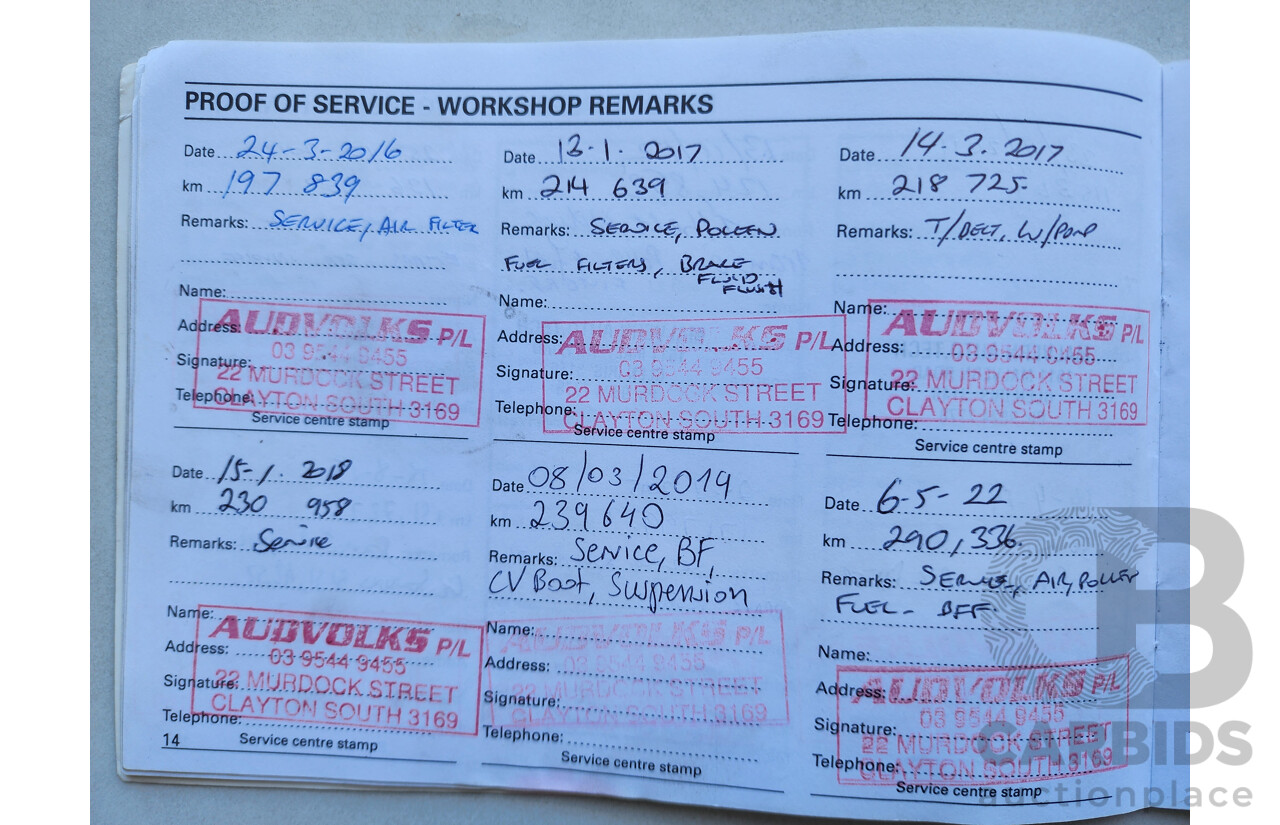 PROOF OF SERVICE - WORKSHOP REMARKS
Date 24-3-2016
km 197 839
Remarks: SERVICE, AIR FILTER
Name:
Address:
Signature:
Telephone:
AUDVOLKS P/L
03 9544 9455
22 MURDOCK STREET
CLAYTON SOUTH 3169
Service centre stamp
Date 13-1. 2017
km 214 639
Remarks: SERVICE, POLLEN
FUEL FILTERS, BRAKE
FLUID
FLUSH
Name:
Address:
Signature:
Telephone:
AUDVOLKS P/L
03 9544 9455
22 MURDOCK STREET
CLAYTON SOUTH 3169
Service centre stamp
Date 14.3.2017
km 218 725
Remarks: T/BELT, W/PUMP
Name:
Address:
Signature:
Telephone:
AUDVOLKS P/L
03 9544 9455
22 MURDOCK STREET
CLAYTON SOUTH 3169
Service centre stamp
Date 15-1. 2018
km 230 958
Remarks: Service
Name:
Address:
Signature:
Telephone:
AUDVOLKS P/L
03 9544 9455
22 MURDOCK STREET
CLAYTON SOUTH 3169
14
Service centre stamp
Date 08/03/2019
km 239640
Remarks: Service, BF,
CV Boot, Suspension
Name:
Address:
Signature:
Telephone:
AUDVOLKS P/L
03 9544 9455
22 MURDOCK STREET
CLAYTON SOUTH 3169
Service centre stamp
Date 6-5-22
km 290,336.
Remarks: SERVICE, AIR, POLLEN
FUEL - BFF.
Name:
Address:
Signature:
Telephone:
AUDVOLKS P/L
03 9544 9455
22 MURDOCK STREET
CLAYTON SOUTH 3169
Service centre stamp
CARBIDS
auctionplace